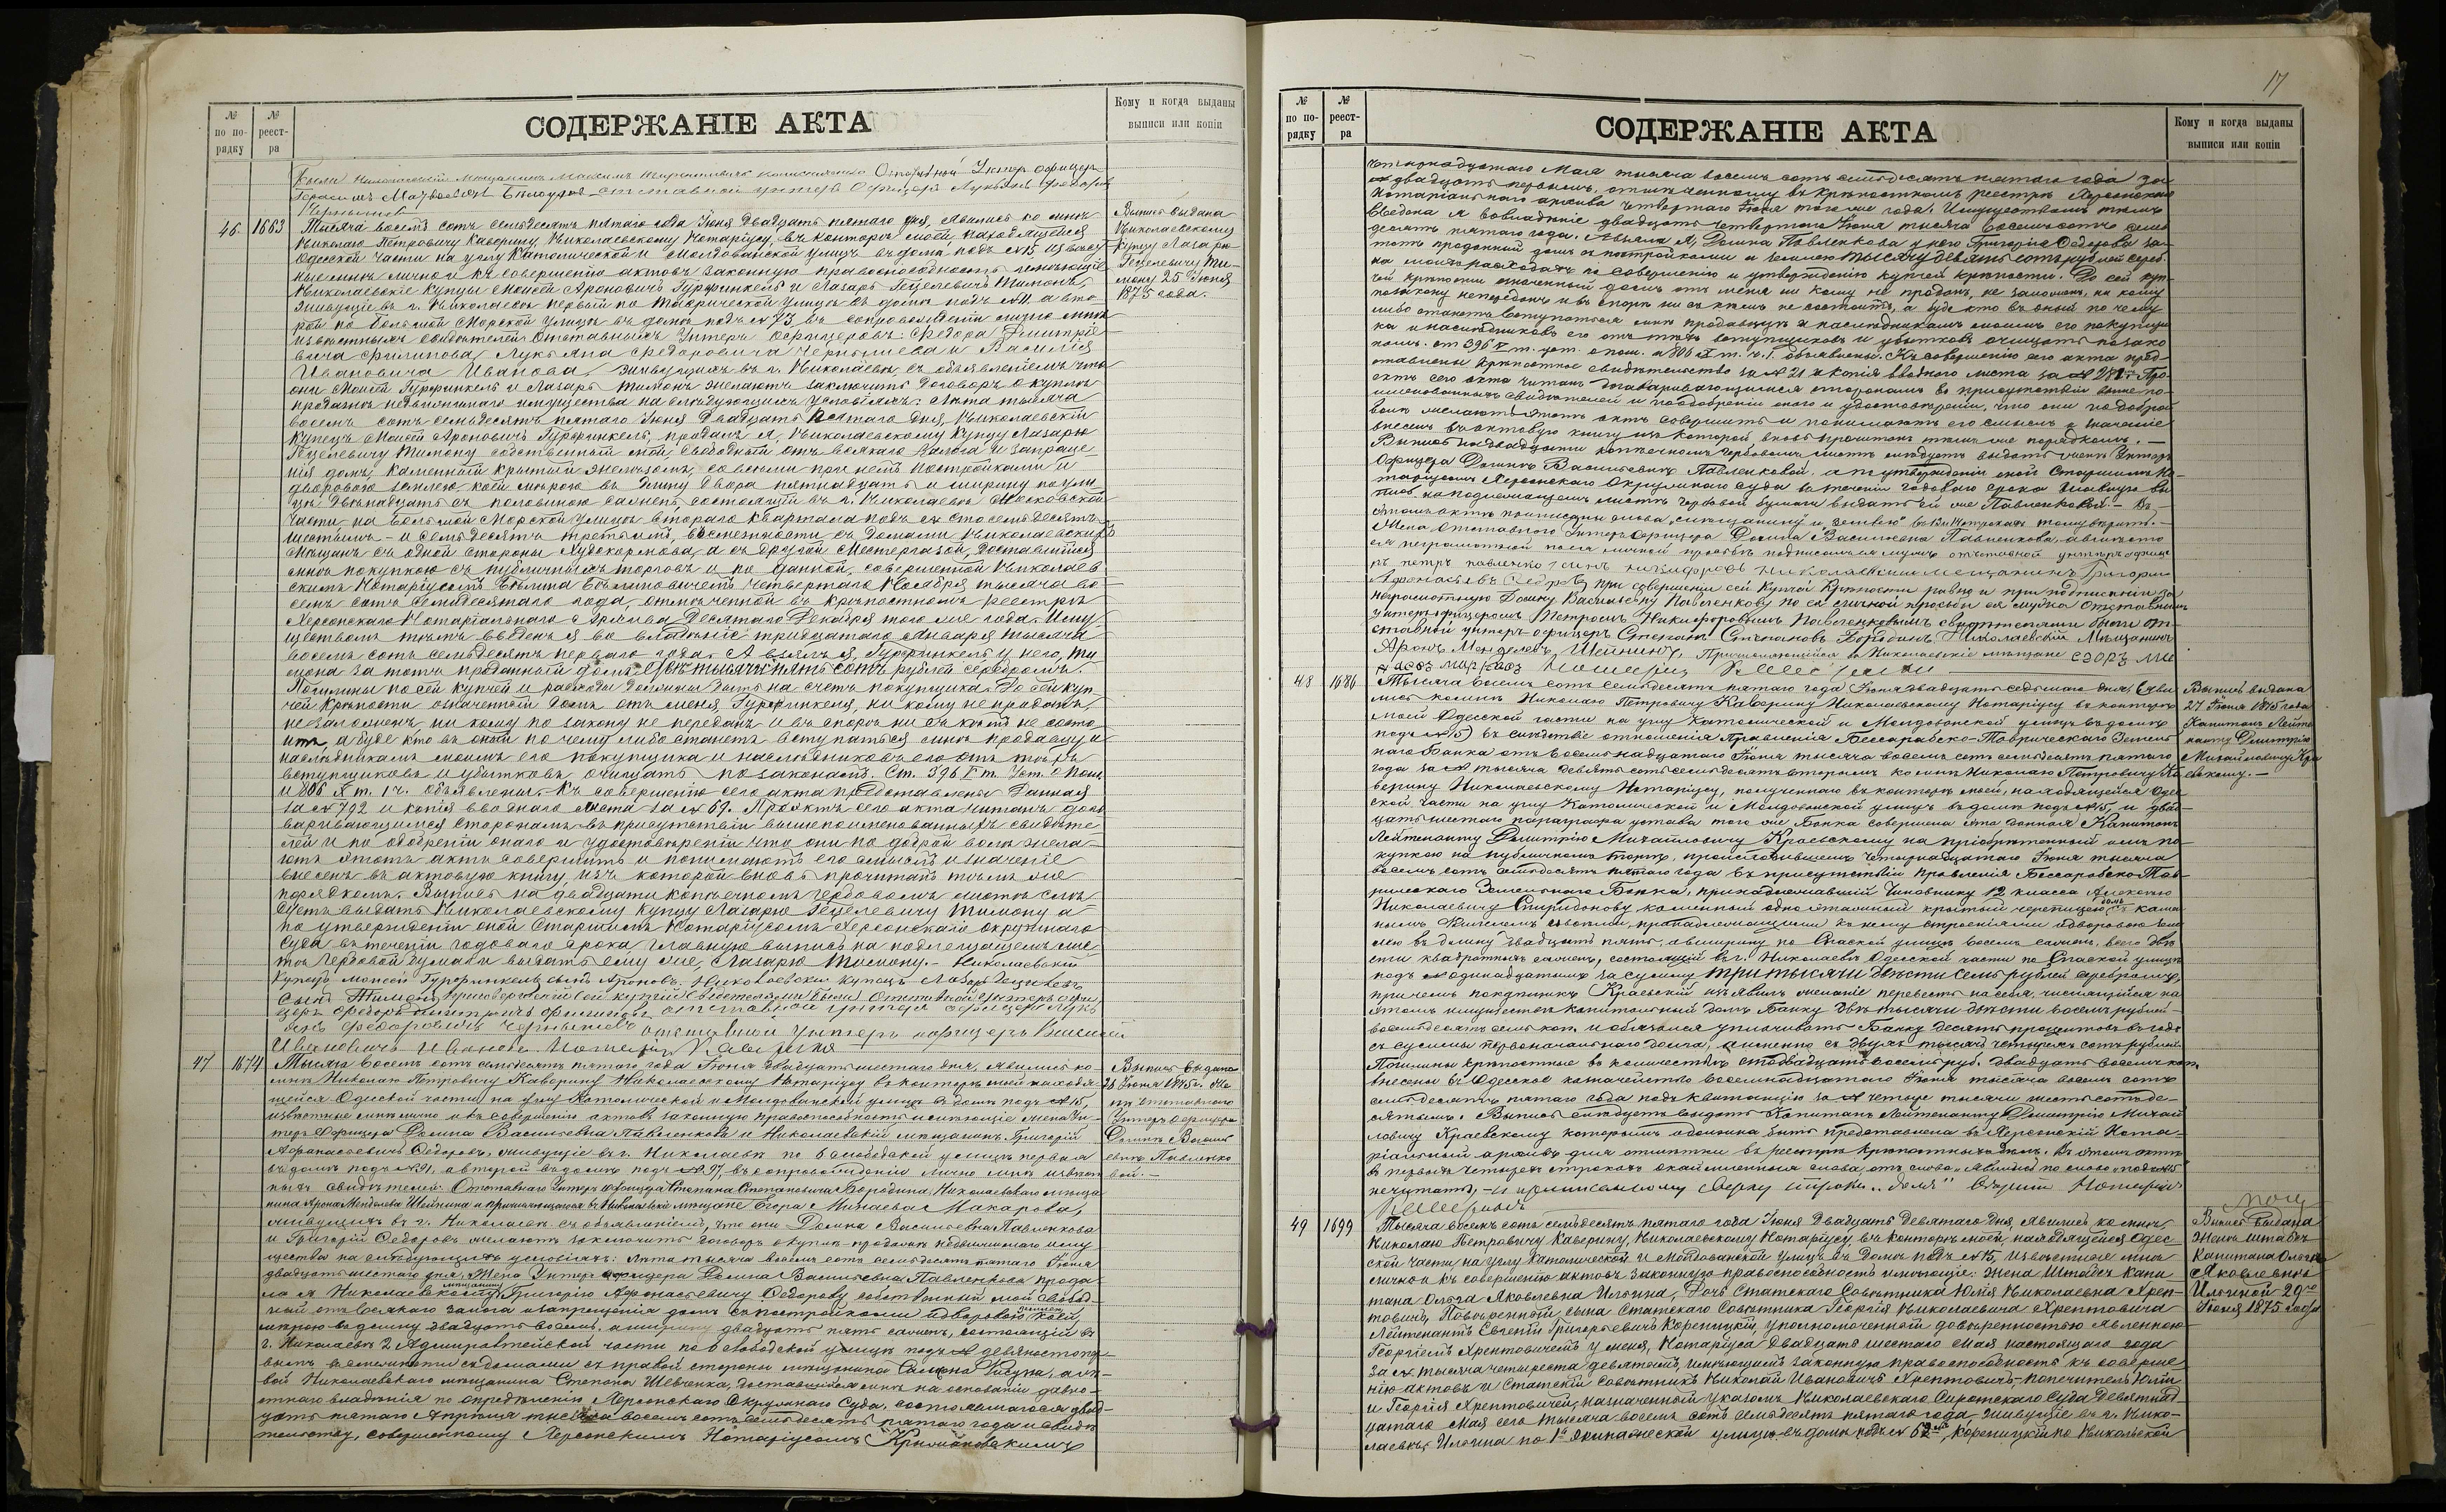 № по по-рядку
№ реест-ра
СОДЕРЖАНІЕ АКТА
Кому и когда выданы выписи или копіи
Отставной Унтер офицер
отставной унтеръ Офицеръ Лукьянъ Федоровъ
Чернышевъ
46 1663 Тысяча восемь сотъ семьдесятъ пятаго года Іюня двадцать пятаго дня, явились ко мнѣ
Николаю Петровичу Каверину, Николаевскому Нотаріусу, въ конторѣ моей, находящейся
Одесской части на углу Католической и Молдованской улицъ въ домѣ подъ №15 извѣст
ные мнѣ лично и къ совершенію актовъ законную правоспособность имѣющіе
Николаевскіе купцы Моисей Ароновичъ Гурфинкель и Лазарь Гецелевичъ Тимонъ,
живущіе въ г. Николаевѣ первый по Таврической улицѣ въ домѣ подъ № а вто
рой по большой Морской улицѣ въ домѣ подъ №73 въ сопровожденіи лично мнѣ
извѣстныхъ свидѣтелей Отставныхъ Унтеръ Офицеровъ: Федора Дмитріе
вича Филипова, Лукьяна Федоровича Чернышева и Василія
Ивановича Иванова, живущихъ въ г. Николаевѣ съ объявленіемъ что
они Моисей Гурфинкель и Лазарь Тимонъ желаютъ заключить договоръ о куплѣ
продажѣ недвижимаго имущества на слѣдующихъ условіяхъ: Лѣта тысяча
восемь сотъ семьдесятъ пятаго Іюня двадцать пятаго дня, Николаевскій
купецъ Моисей Ароновичъ Гурфинкель, продалъ я, Николаевскому купцу Лазарю
Гецелевичу Тимону собственный мой, свободный отъ всякаго залога и запреще
нія домъ, каменный крытый желѣзомъ, со всѣми при немъ постройками и
дворовою землею, коей мѣрою въ длину двора пятнадцать и ширину по ули
цѣ двѣнадцать съ половиною саженъ, состоящій въ г. Николаевѣ Московской
части на большой Морской улицѣ втораго квартала подъ №№ сто семьдесятъ
шестымъ и семьдесятъ третьимъ, въ смежности съ домами Николаевскихъ
мѣщанъ съ одной стороны Худокормова, а съ другой Местергазой, доставшійся
мнѣ покупкою съ публичныхъ торговъ и по данной, совершенной Николаев
скимъ Нотаріусомъ четвертаго Ноября тысяча во
семь сотъ семидесятаго года, отмѣченной въ крѣпостномъ реестрѣ
Херсонскаго Нотаріальнаго Архива десятаго декабря того же года. Иму
ществомъ тѣмъ введенъ я во владѣніе тридцатаго Января тысяча
восемь сотъ семьдесятъ перваго года. А взялъ я, Гурфинкель у него, Ти
мона за тотъ проданный домъ двѣ тысячи пять сотъ рублей серебромъ.
Пошлины по сей купчей и расходы должны быть на счетъ покупщика. До сей куп
чей крѣпости означенный домъ отъ меня, Гурфинкеля, ни кому не проданъ,
не заложенъ, ни кому по закону не переданъ и въ спорѣ ни съ кѣмъ не состо
итъ, а буде кто въ оный по чему либо станетъ вступаться мнѣ продавцу и
наслѣдникамъ моимъ его покупщика и наслѣдниковъ его отъ тѣхъ
вступщиковъ и убытковъ очищать по законамъ. Ст. 396 V т. Уст. о Пош.
и 806 X т. 1 ч. объявлены. Къ совершенію сего акта представлены данная
за №792 и копія вводнаго листа за №69. Проэктъ сего акта читанъ дого
варивающимся сторонамъ въ присутствіи вышепоименованныхъ свидѣте
лей и по одобреніи онаго и удостовѣреніи что они по доброй волѣ жела
ютъ этотъ актъ совершить и понимаютъ его смыслъ и значеніе
внесенъ въ актовую книгу, изъ которой вновь прочитанъ тѣмъ же
порядкомъ. Выпись на двадцати копѣечномъ гербовомъ листѣ слѣ
дуетъ выдать Николаевскому купцу Лазарю Гецелевичу Тимону а
по утвержденіи оной Старшимъ Нотаріусомъ Херсонскаго окружнаго
Суда въ теченіи годоваго срока главную выпись на подлежащемъ лис
тѣ гербовой бумаги выдать ему же, Лазарю Тимону.- Николаевскій
купецъ Моисей Гурфинкель сынъ Ароновъ. Николаевскій купецъ Лазарь Гецелевъ
сынъ Тимонъ При совершеніи сей купчей свидѣтелями были Отставной унтеръ офи
церъ Федоръ Дмитріевъ Филиповъ отставной унтеръ офицеръ Лукь
янъ Федоровичъ Чернышевъ отставной унтеръ офицеръ Василій
Ивановичъ Ивановъ. Нотаріусъ Каверинъ
Выпись выдана
Николаевскому
купцу Лазарю
Гецелевичу Ти-
мону 25 Іюня
1875 года.
47 1674 Тысяча восемь сотъ семьдесятъ пятаго года Іюня двадцать шестаго дня, явились ко
мнѣ Николаю Петровичу Каверину Николаевскому Нотаріусу въ конторѣ моей находя
щейся Одесской части на углу Католической и Молдованской улицъ въ домѣ подъ №15,
извѣстные мнѣ лично и къ совершенію актовъ законную правоспособность имѣющіе жена Ун
теръ Офицера Домна Васильевна Павленкова и Николаевскій мѣщанинъ Григорій
Афанасьевичъ Федоровъ, живущіе въ г. Николаевѣ по Слободской улицѣ первая
въ домѣ подъ №91, а второй въ домѣ подъ №97, въ сопровожденіи лично мнѣ извѣст
ныхъ свидѣтелей: Отставнаго Унтеръ офицера Степана Степановича Бородина, Николаевскаго мѣща
нина Арона Менделева Шейнина и причисляющагося въ Николаевскіе мѣщане Егора Минаева Макарова,
живущихъ въ г. Николаевѣ съ объявленіемъ, что они Домна Васильевна Павленкова
и Григорій Федоровъ желаютъ заключить договоръ о куплѣ-продажѣ недвижимаго иму
щества на слѣдующихъ условіяхъ: Лѣта тысяча восемь сотъ семьдесятъ пятаго Іюня
двадцать шестаго дня, Жена Унтеръ офицера Домна Васильевна Павленкова прода
ла я Николаевскому мѣщанину Григорію Афанасьевичу Федорову собственный мой свобод
ный отъ всякаго залога и запрещенія домъ съ постройками и дворовою землею коей,
мѣрою въ длину двадцать восемь, а ширину двадцать пять саженъ, состоящій въ
г. Николаевѣ 2 Адмиралтейской части по Слободской улицѣ подъ № девяносто пер
вымъ въ смежности съ домами съ правой стороны мѣщанина а лѣ-
вой Николаевскаго мѣщанина Степана Шевченка, доставшійся мнѣ на основаніи давно-
стнаго владѣнія по опредѣленію Херсонскаго Окружнаго Суда, состоявшагося двад-
цать пятаго Апрѣля тысяча восемь сотъ семьдесятъ пятаго года и свидѣ
тельству, совершенному Херсонскимъ Нотаріусомъ Крыжановскимъ
Выпись выдана
26 Іюня 1875 г. Же
нѣ Отставнаго
Унтеръ Офицера
Домнѣ Василь
евнѣ Павленко
вой.-
17
№ по по-рядку
№ реест-ра
СОДЕРЖАНІЕ АКТА
Кому и когда выданы выписи или копіи
четырнадцатаго Мая тысяча восемь сотъ семьдесятъ пятаго года за
№ двадцать первымъ, отмѣченному въ крѣпостномъ реестрѣ Херсонскаго
Нотаріальнаго архива четвертаго Іюня того же года. Имуществомъ тѣмъ
введена я во владѣніе двадцать четвертаго Іюня тысяча восемь сотъ семь
десятъ пятаго года. А взяла я, Домна Павленкова у него Григорія Федорова за
тотъ проданный домъ съ постройками и землею тысячу девять сотъ рублей сереб.
на моихъ расходахъ по совершенію и утвержденію купчей крѣпости. До сей куп
чей крѣпости означенный домъ отъ меня ни кому не проданъ, не заложенъ, ни кому
по закону непереданъ и въ спорѣ ни съ кѣмъ не состоитъ, а буде кто въ оный по чему
либо станетъ вступаться мнѣ продавщицѣ и наслѣдникамъ моимъ его покупщи
ка и наслѣдниковъ его отъ тѣхъ вступщиковъ и убытковъ очищать по зако
намъ. ст 396 V т. уст. о пош. и 806 X т. ч. 1. объявлены. Къ совершенію сего акта пред-
ставлены крѣпостное свидѣтельство за №21 и копія вводнаго листа за № Про-
ектъ сего акта читанъ договаривающимся сторонамъ въ присутствіи выше по-
именованныхъ свидѣтелей и по одобреніи онаго и удостовѣреніи, что они по доброй
волѣ желаютъ этотъ актъ совершить и понимаютъ его смыслъ и значеніе
внесенъ въ актовую книгу изъ которой, вновь прочитанъ тѣмъ же порядкомъ.-
Выпись на двадцати копѣечномъ гербовомъ листѣ слѣдуетъ выдать женѣ Унтеръ
Офицера Домнѣ Васильевнѣ Павленковой, а по утвержденіи оной Старшимъ Но-
таріусомъ Херсонскаго Окружнаго Суда въ теченіи годоваго срока главную вы
пись на подлежащемъ листѣ гербовой бумаги выдать ей же Павленковой.- Въ
этомъ актѣ приписаны слова „мѣщанину и „землею" вѣрить.-
Жена Отставнаго Унтеръ офицера Домна Васильевна Павленкова, а вмѣсто
ея неграмотной по ея личной просьбѣ подписался мужъ отставной унтеръ офице
ръ петръ павленко сынъ никифоровъ Николаевскій мещанинъ Григорій
Афонасьевъ Федоровъ при совершеніи сей Купчей Крѣпости равно и при подписаніи за
неграмотную Домну Васильевну Павленкову по ея личной просьбѣ ея мужемъ Отставнымъ
унтеръ-офицеромъ Петромъ Никифоровымъ Павленковымъ свидѣтелями были от-
ставной унтеръ офицеръ Степанъ Степановъ Бородинъ, Николаевскій Мѣщанинъ
Аронъ Менделевъ Шейнинъ, Причисляющійся въ Николаевскіе мѣщане
Нотаріусъ Каверинъ
48 1686 Тысяча восемь сотъ семьдесятъ пятаго года Іюня двадцать седьмаго дня, яви
лись ко мнѣ Николаю Петровичу Каверину Николаевскому Нотаріусу въ конторѣ
моей Одесской части на углу Католической и Молдованской улицъ въ домѣ
подъ №15) въ слѣдствіе отношенія Правленія Бессарабско-Таврическаго Земель
наго банка отъ восемнадцатаго Іюня тысяча восемь сотъ семьдесятъ пятаго
года за № тысяча девять сотъ семьдесятъ вторымъ ко мнѣ Николаю Петровичу Ка
верину Николаевскому Нотаріусу, полученнаго въ конторѣ моей, находящейся Одес
ской части на углу Католической и Молдованской улицъ въ домѣ подъ №15, и двад-
цать шестаго параграфа устава того же Банка совершена эта данная Капитанъ
Лейтенанту Дмитрію Михайловичу Краевскому на пріобрѣтенный имъ по-
купкою на публичномъ торгѣ, происходившемъ четырнадцатаго Іюня тысяча
восемь сотъ семьдесятъ пятаго года въ присутствіи Правленія Бессарабско-Тав-
рическаго Земельнаго Банка, принадлежавшій Чиновнику 12 класса Алексѣю
Николаевичу Спиридонову каменный одноэтажный крытый черепицею домъ съ каме
ннымъ флигелемъ со всѣми, принадлежащими къ нему строеніями и дворовою зем
лею въ длину двадцать пять, а въ ширину по Спаской улицѣ восемь саженъ, всего двѣ
сти квадратныхъ саженъ, состоящій въ г. Николаевѣ Одесской части по Спаской улицѣ
подъ № одинадцатымъ за сумму три тысячи двѣсти семь рублей серебромъ,
при чемъ покупщикъ Краевскій изъявилъ желаніе перевесть на себя, числящійся на
этомъ имуществѣ капитальный долгъ Банку двѣ тысячи двѣсти восемь рублей
восемьдесятъ семь коп. и обязался уплачивать Банку десять процентовъ въ годъ
съ суммы первоначальнаго долга, именно съ двухъ тысячъ четырехъ сотъ рублей.
Пошлины крѣпостные въ количествѣ сто двадцать восемь руб. двадцать восемь коп.
внесены въ Одесское казначейство восемнадцатаго Іюня тысяча восемь сотъ
семьдесятъ пятаго года подъ квитанцію за № четыре тысячи шестьсотъ де-
сятымъ. Выпись слѣдуетъ выдать Капитанъ Лейтенанту Дмитрію Михай
ловичу Краевскому которымъ должна быть представлена въ Херсонскій Нота-
ріальный архивъ для отмѣтки въ реестрѣ крѣпостныхъ дѣлъ. Въ этомъ актѣ
въ первыхъ четырехъ строкахъ окаймленныя слова, отъ слова „явились по слово „подъ №15"
нечитать,-и приписанному сверху строки „домъ" вѣрить Нотаріусъ
Каверинъ
Выпись выдана
27 Іюня 1875 года
Капитанъ Лейте
нанту Дмитрію
Михайловичу Кра
евскому.-
49 1699 Тысяча восемь сотъ семьдесятъ пятаго года Іюня двадцать девятаго дня, явились ко мнѣ,
Николаю Петровичу Каверину, Николаевскому Нотаріусу, въ конторѣ моей, находящейся Одес-
ской части, на углу Католической и Молдованской улицъ въ домѣ подъ №15, извѣстные мнѣ
лично и къ совершенію актовъ законную правоспособность имѣющіе: жена Штабсъ Капи
тана Ольга Яковлевна Ильина, Дочь Статскаго Совѣтника Юлія Николаевна Хреп-
товичъ, Повѣренный сына Статскаго Совѣтника Георгія Николаевича Хрептовича
Лейтенантъ Евгеній Григорьевичъ Кореницкій, уполномоченный довѣренностью явленною
Георгіемъ Хрептовичемъ у меня, Нотаріуса двадцать шестаго Мая настоящаго года
за № тысяча четыреста девятымъ, имѣющимъ законную правоспособность къ соверше
нію актовъ и Статскій Совѣтникъ Николай Ивановичъ Хрептовичъ,-попечитель Юліи
и Георгія Хрептовичей, назначенный указомъ Николаевскаго Сиротскаго Суда девятнад
цатаго Мая сего тысяча восемь сотъ семьдесятъ пятаго года, живущіе въ г. Нико-
лаевѣ, Ильина по 1й Экипажеской улицѣ въ домѣ подъ № Кореницкій по Никольской
Выпись выдана
Женѣ Штабсъ
Капитана Ольгѣ
Яковлевнѣ
Ильиной 29го
Іюня 1875 года